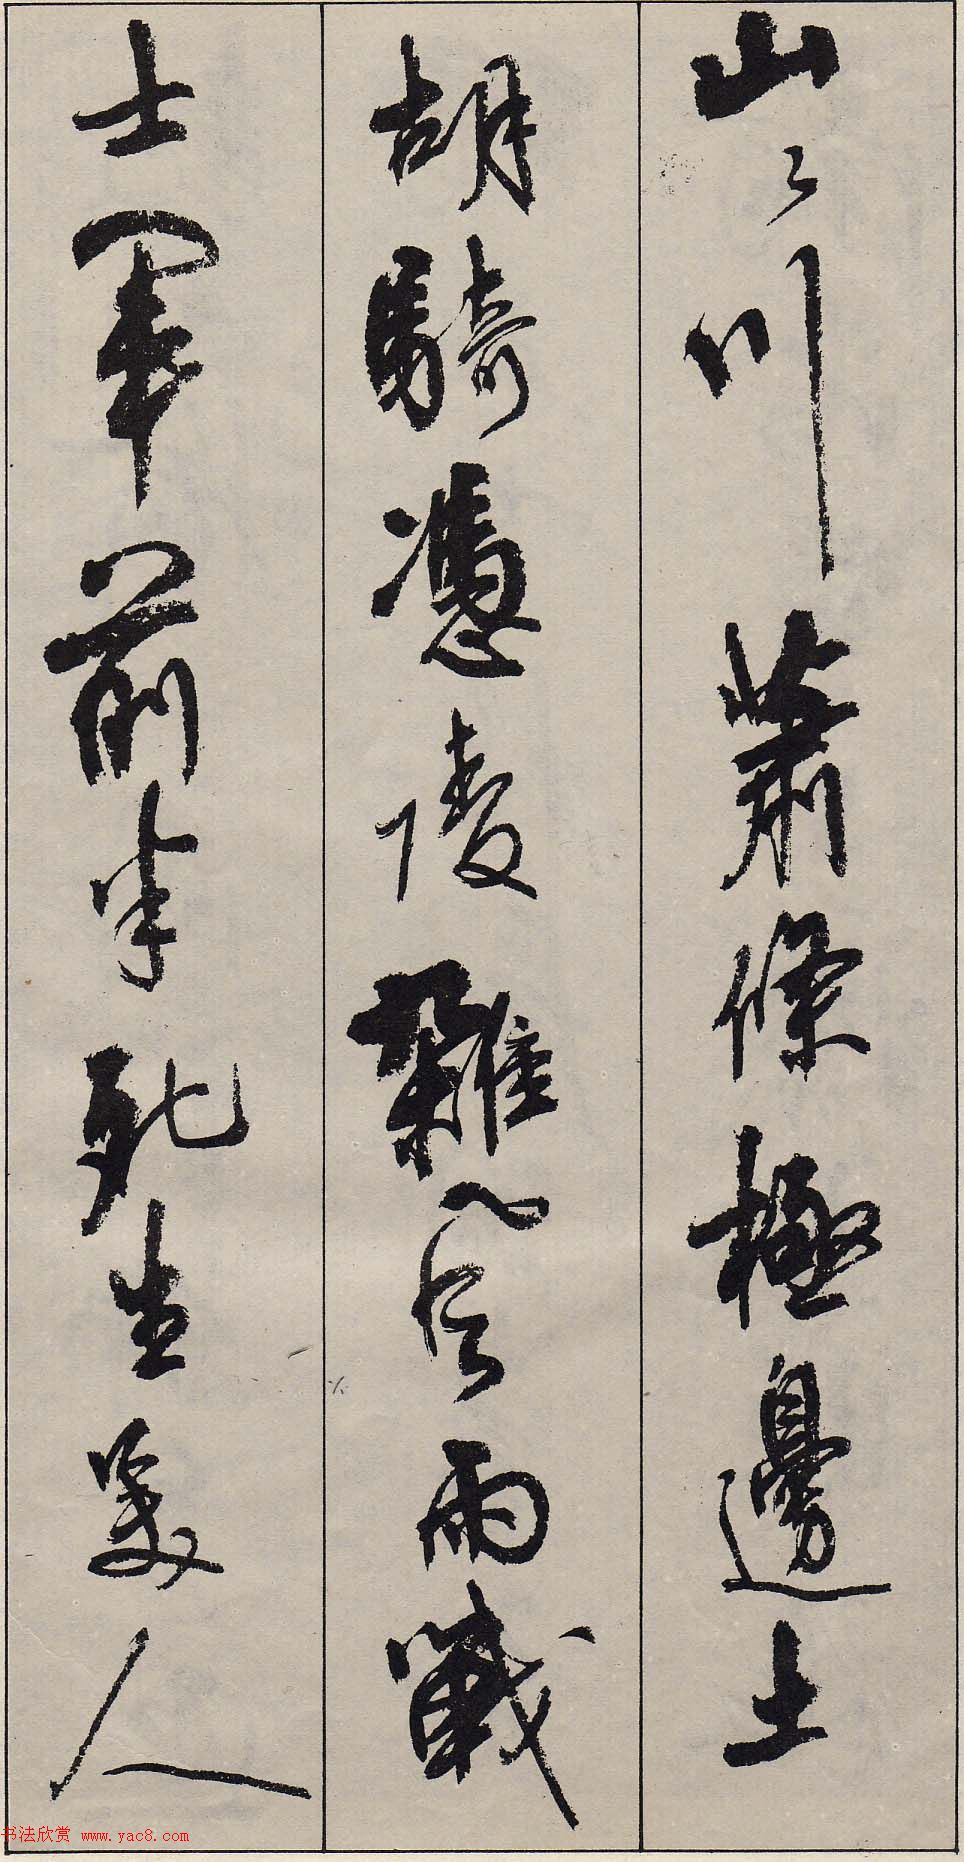 山川蕭條極邊土
胡騎憑陵雜風雨戰
士軍前半死生美人
书法欣赏 www.yac8.com